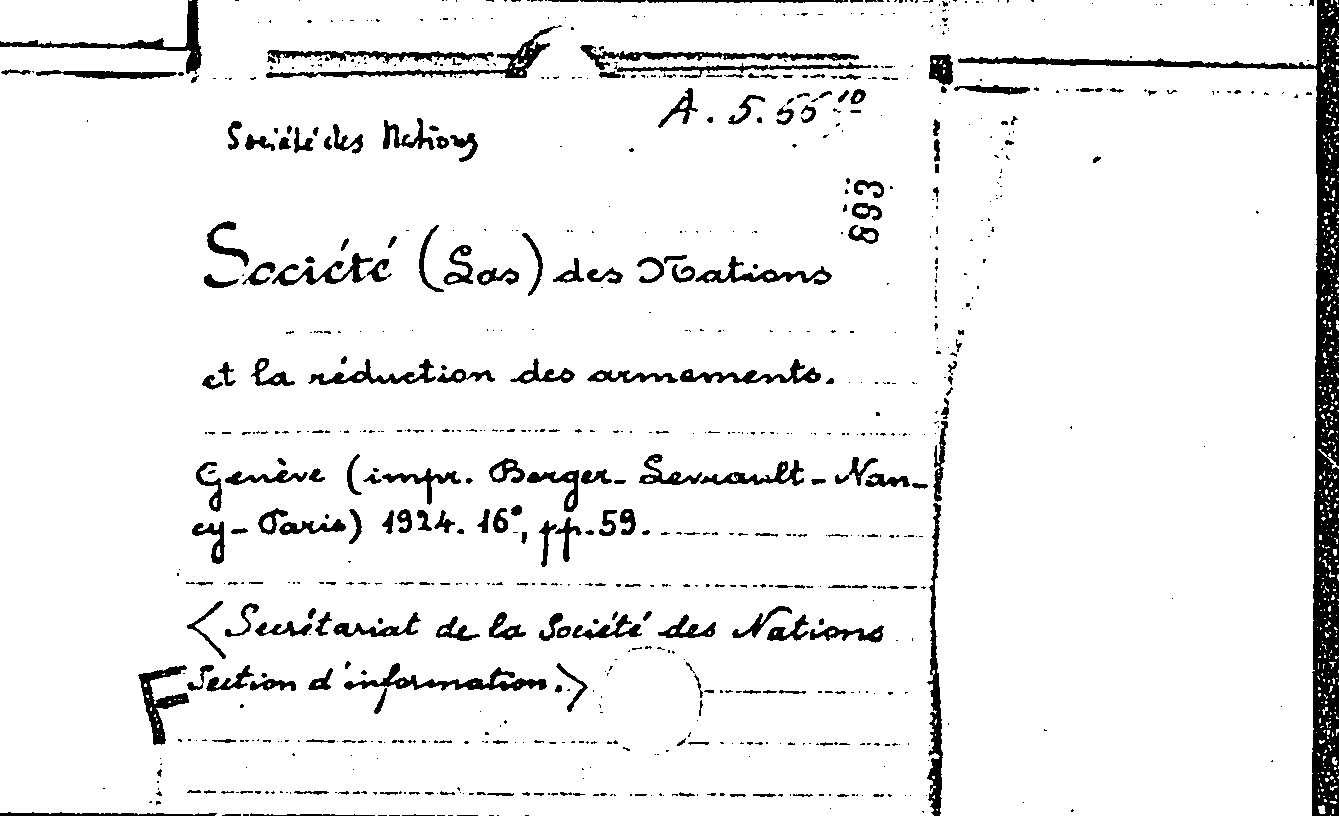 A. 5. 56¹⁰
Société des Nations
893
Société (Las) des Nations
et la réduction des armements.
Genève (impr. Berger-Levrault-Nan-
cy-Paris) 1924. 16°, pp. 59.
<Secrétariat de la Société des Nations
Section d'information.>
F